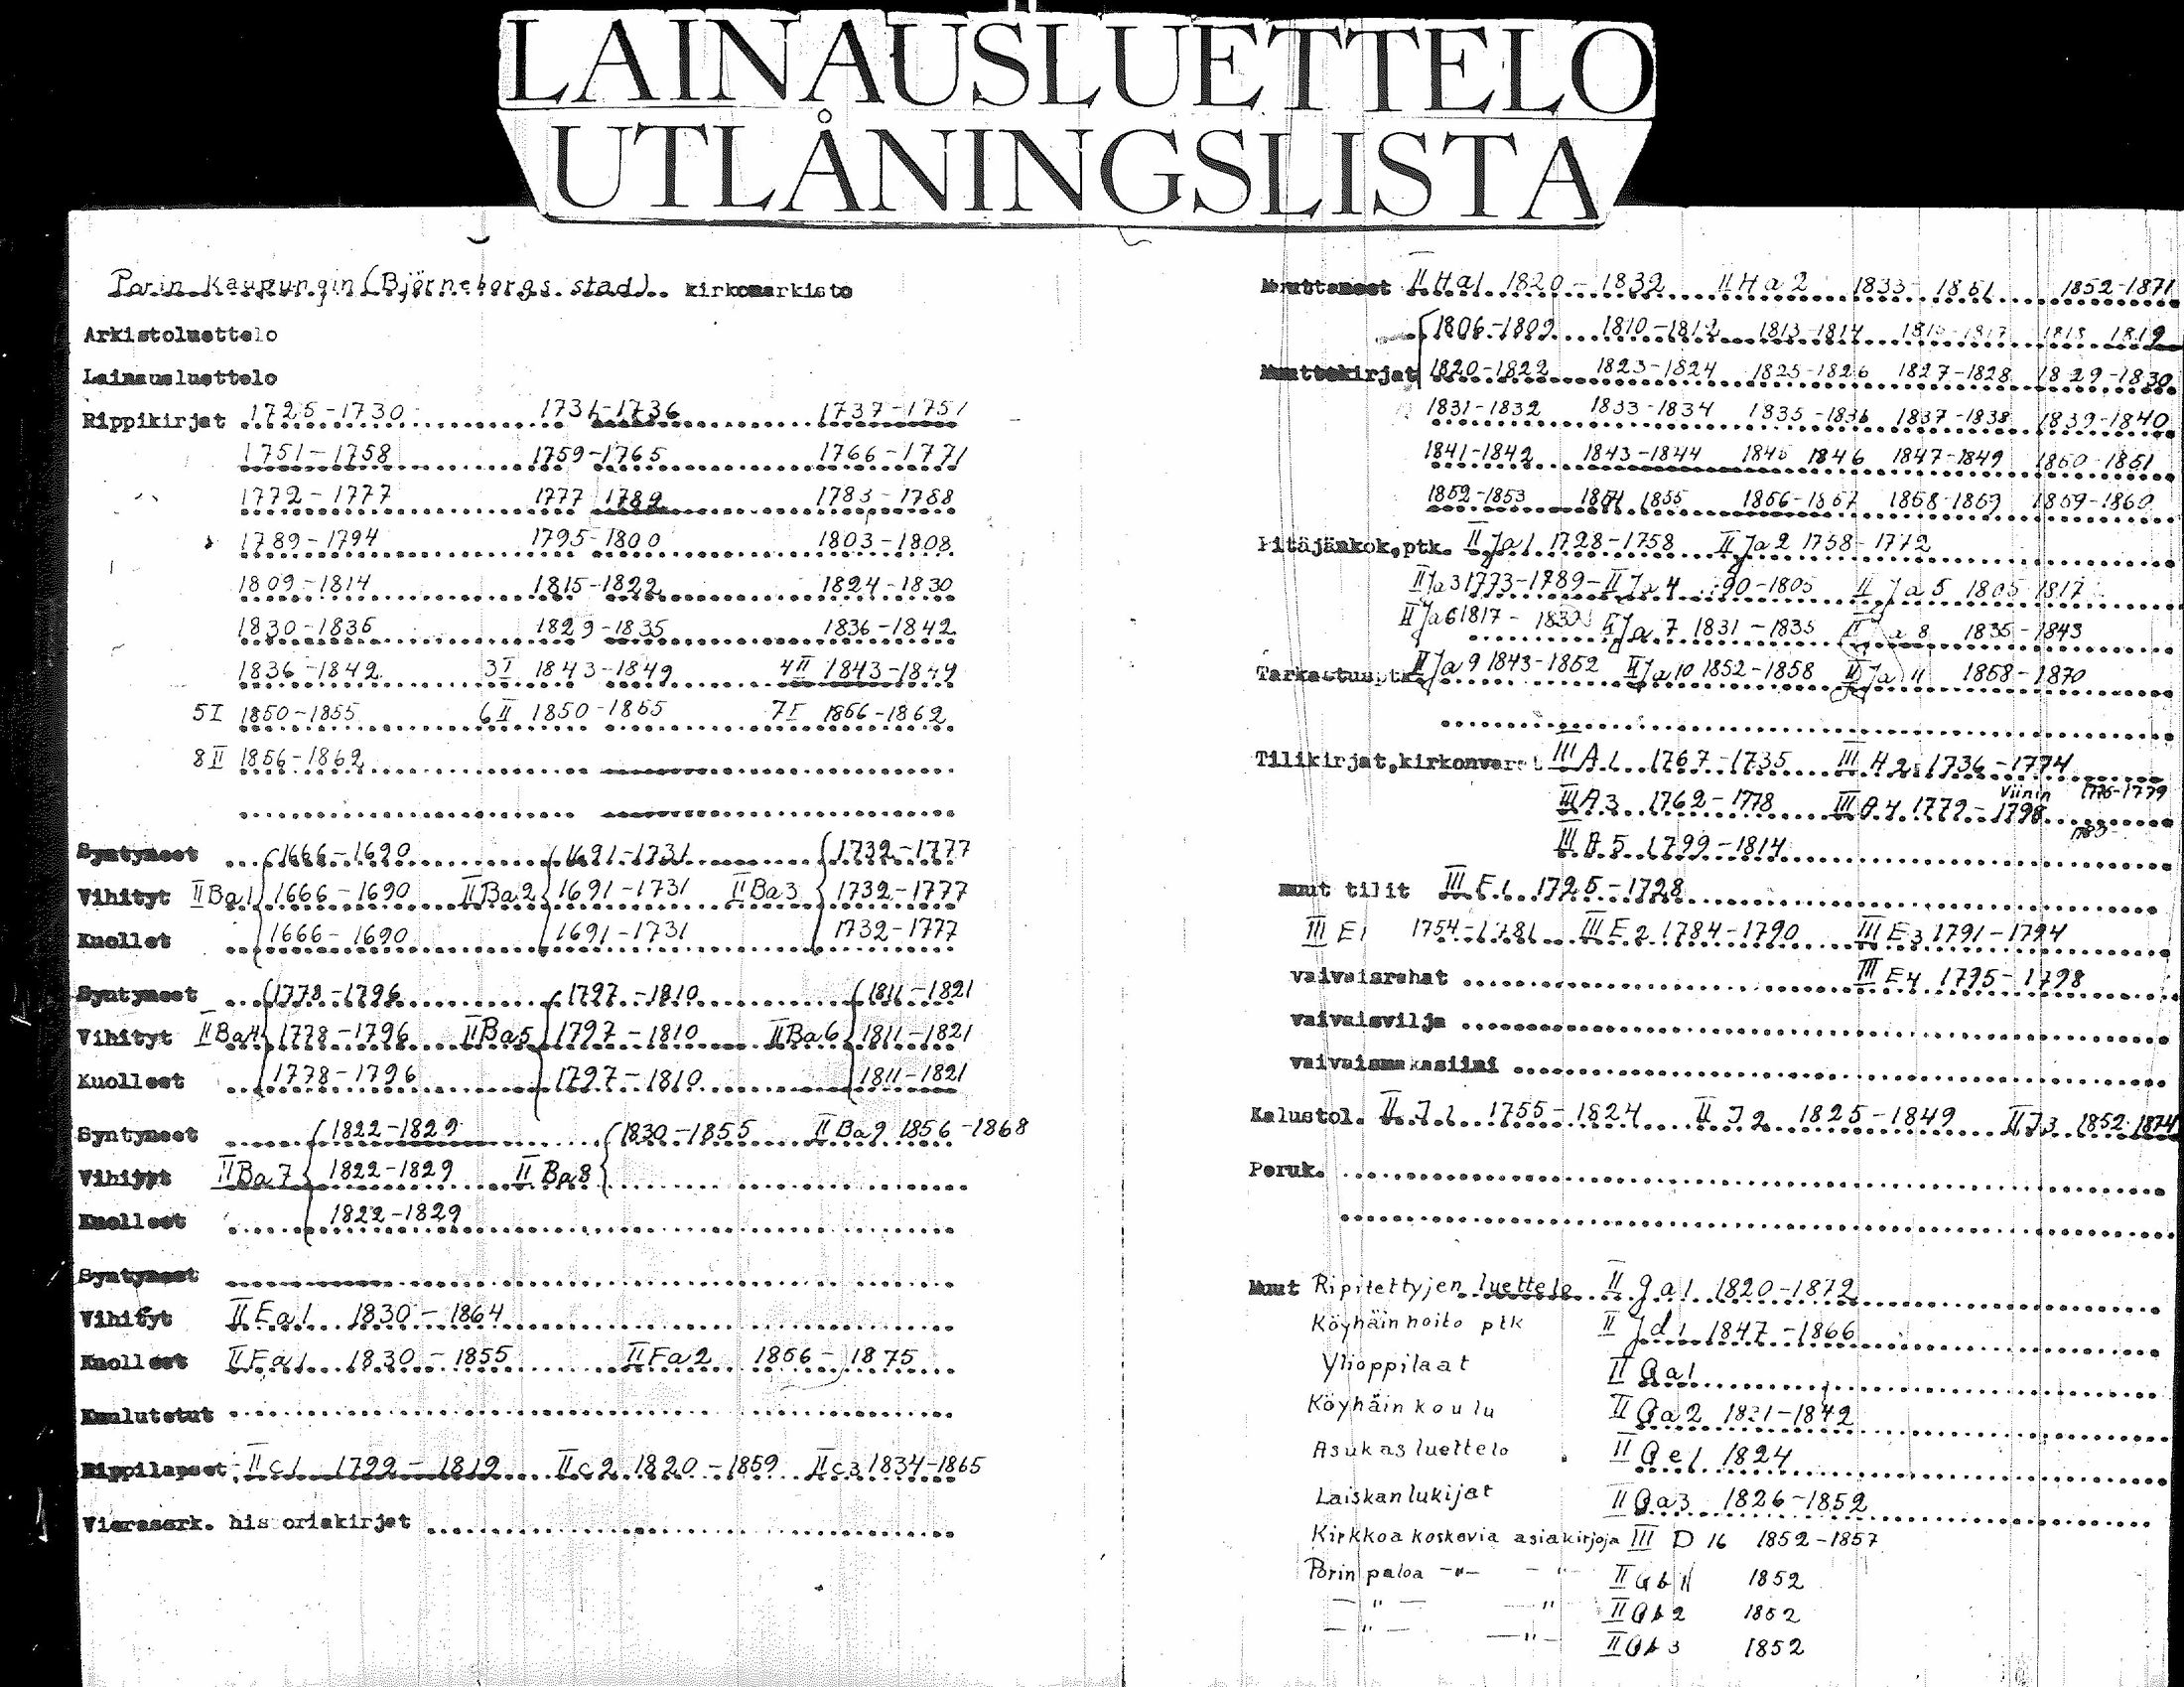 LAINAUSLUETTELO
UTLÅNINGSLISTA
Porin Kaupungin (Björneborgs stad) kirkonarkisto
Arkistoluettelo
Lainausluettelo
Rippikirjat 1725-1730 1731-1736 1737-1751
1751-1758 1759-1765 1766-1771
1772-1777 1777 1782 1783-1788
1789-1794 1795-1800 1803-1808
1809-1814 1815-1822 1824-1830
1830-1835 1829-1835 1836-1842
1836-1842 3I 1843-1849 4II 1843-1849
5I 1850-1855 6II 1850-1855 7I 1856-1862
8II 1856-1862
Syntyneet 1666-1690 1691-1731 1732-1777
Vihityt II Ba1 1666-1690 II Ba2 1691-1731 II Ba3 1732-1777
Kuollet 1666-1690 1691-1731 1732-1777
Syntyneet 1778-1796 1797-1810 1811-1821
Vihityt II Ba4 1778-1796 II Ba5 1797-1810 II Ba6 1811-1821
Kuolleet 1778-1796 1797-1810 1811-1821
Syntyneet 1822-1829 1830-1855 II Ba9 1856-1868
Vihityt II Ba7 1822-1829 II Ba8
Kuolleet 1822-1829
Syntyneet
Vihityt II Ea1 1830-1864
Kuolleet II Fa1 1830-1855 II Fa2 1856-1875
Kuulutetut
Rippilapset II c1 1799-1819 II c2 1820-1859 II c3 1834-1865
Vierasark. historiakirjat
Muuttaneet II Ha1 1820-1832 II Ha2 1833-1851 1852-1871
1806-1809 1810-1812 1813-1814 1815-1817 1818 1819
Muuttokirjat 1820-1822 1823-1824 1825-1826 1827-1828 1829-1830
1831-1832 1833-1834 1835-1836 1837-1838 1839-1840
1841-1842 1843-1844 1845 1846 1847-1849 1850-1851
1852-1853 1854 1855 1856-1857 1858-1859 1859-1860
Pitäjänkok.ptk. II Ja1 1728-1758 II Ja2 1758-1772
II Ja3 1773-1789 - II Ja4 90-1805 II Ja5 1805 1817
II Ja6 1817- II Ja7 1831-1835 II Ja8 1835-1843
Tarkastusptk II Ja9 1843-1852 II Ja10 1852-1858 II Ja11 1858-1870
Tilikirjat,kirkonvarat III A1 1767-1735 III A2 1736-1774
III A3 1762-1778 III A4 1779-1798 Viinin 1776-1779
III A5 1799-1814
muut tilit III E1 1725-1728
III E1 1754-1781 III E2 1784-1790 III E3 1791-1794
vaivaisrahat III E4 1795-1798
vaivaisvilja
vaivaismakasiini
Kalustol. II I1 1755-1824 II I2 1825-1849 II I3 1852-1874
Peruk.
Muut Ripitettyjen luettelo II ga1 1820-1872
Köyhäinhoito ptk II Jd1 1847-1866
Ylioppilaat II Ga1
Köyhäinkoulu II Ga2 1821-1842
Asukasluettelo II Ge1 1824
Laiskanlukijat II Ga3 1826-1852
Kirkkoa koskevia asiakirjoja III D 16 1852-1857
Porin paloa -"- -"- II Gb1 1852
-"- -"- II Gb2 1852
-"- -"- II Gb3 1852